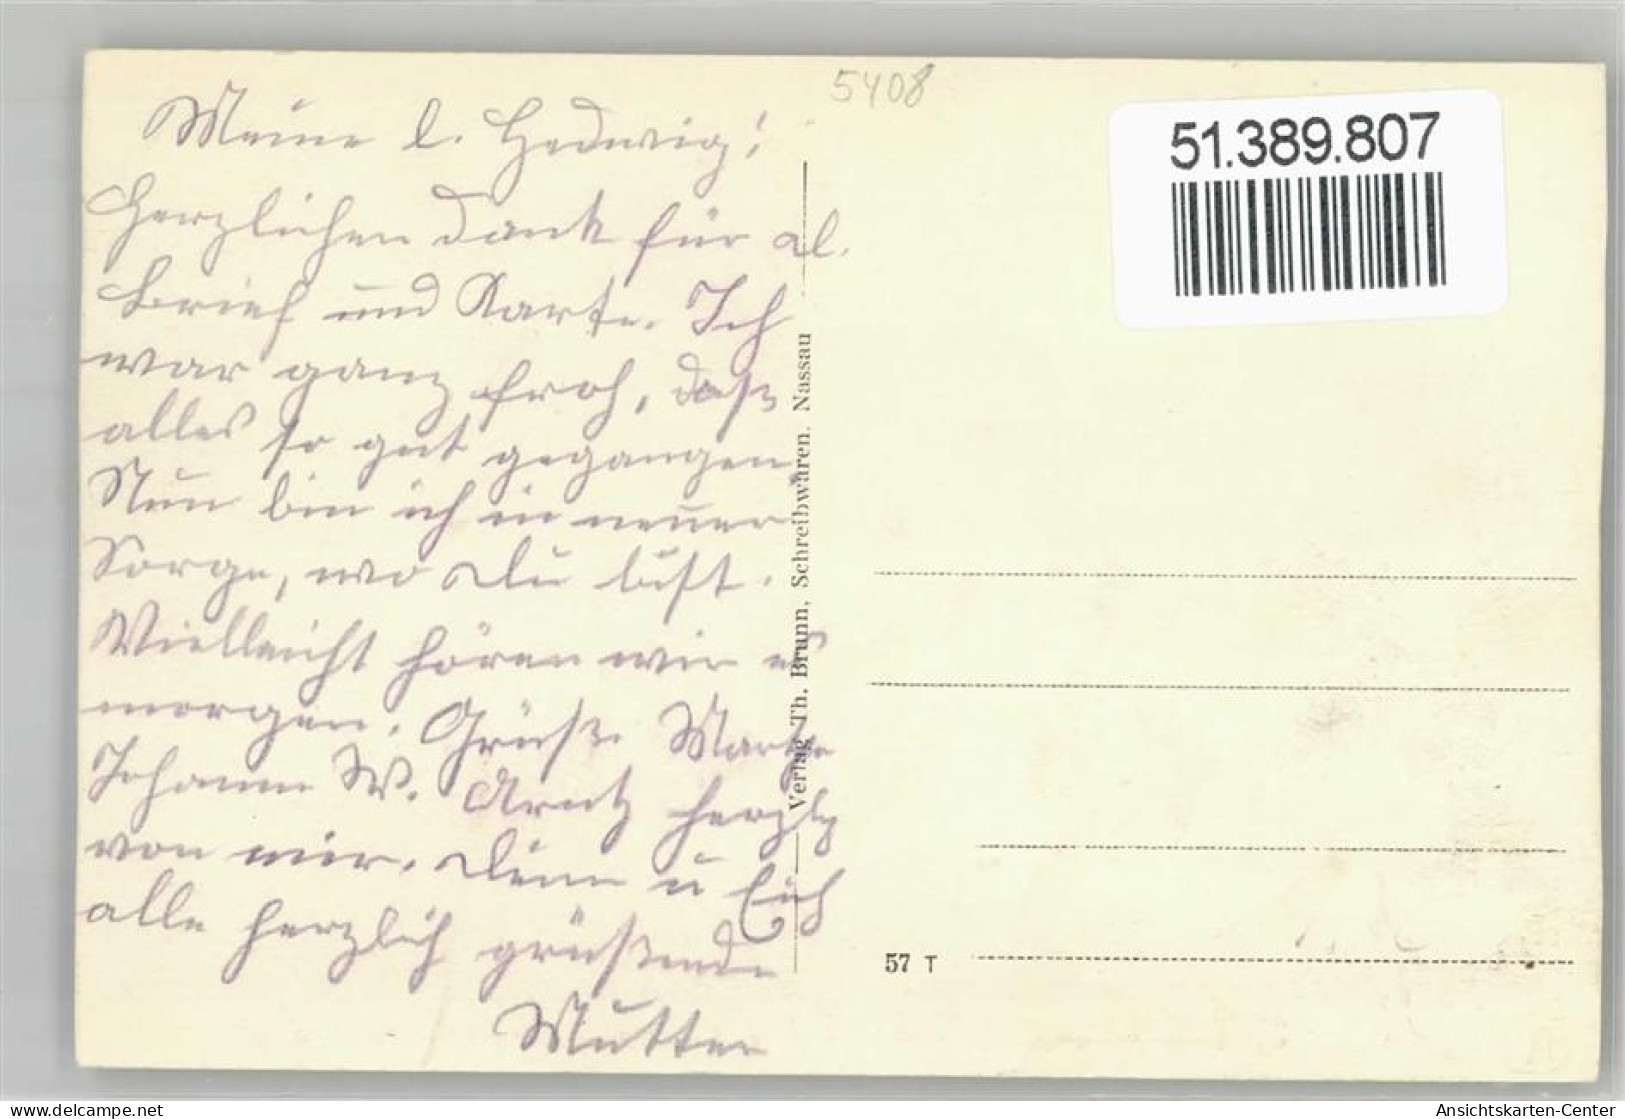 5408
51.389.807
Meine l. Hedwig!
Herzlichen Dank für al.
Brief und Karte. Ich
war ganz froh, daß
alles so gut gegangen.
Nun bin ich in neuer
Sorge, wo Du bist.
Vielleicht hören wir es
morgen. Grüße
Johann W. Arntz herzlg
von mir. Deine u Euch
alle herzlich grüßende
Mutter
Verlag Th. Brunn, Schreibwaren, Nassau
57 T
delcampe.net
Ansichtskarten-Center